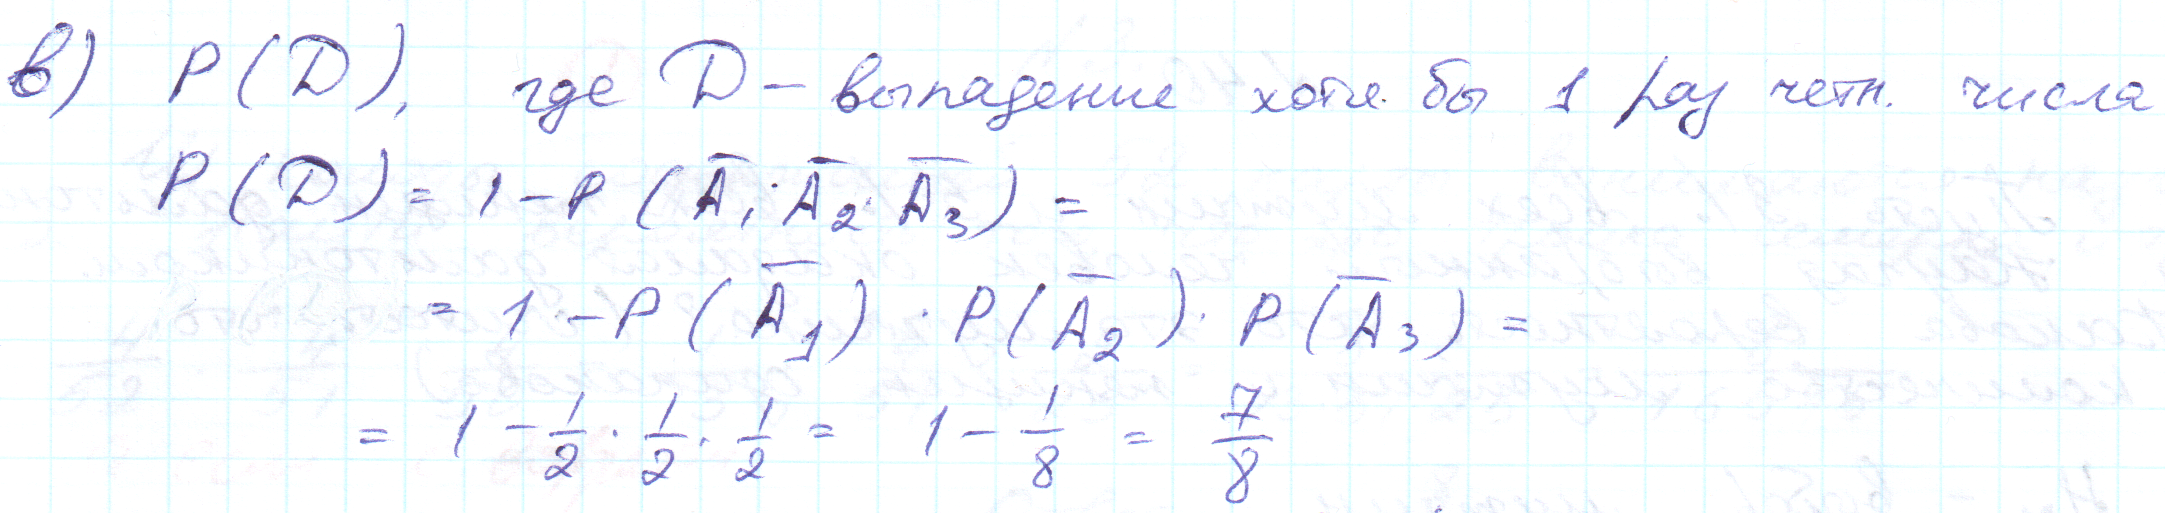 в) P(D), где D - выпадение хотя бы 1 раз четн. числа
P(D) = 1 - P(A̅₁·A̅₂·A̅₃) =
= 1 - P(A̅₁)·P(A̅₂)·P(A̅₃) =
= 1 - 1/2 · 1/2 · 1/2 = 1 - 1/8 = 7/8